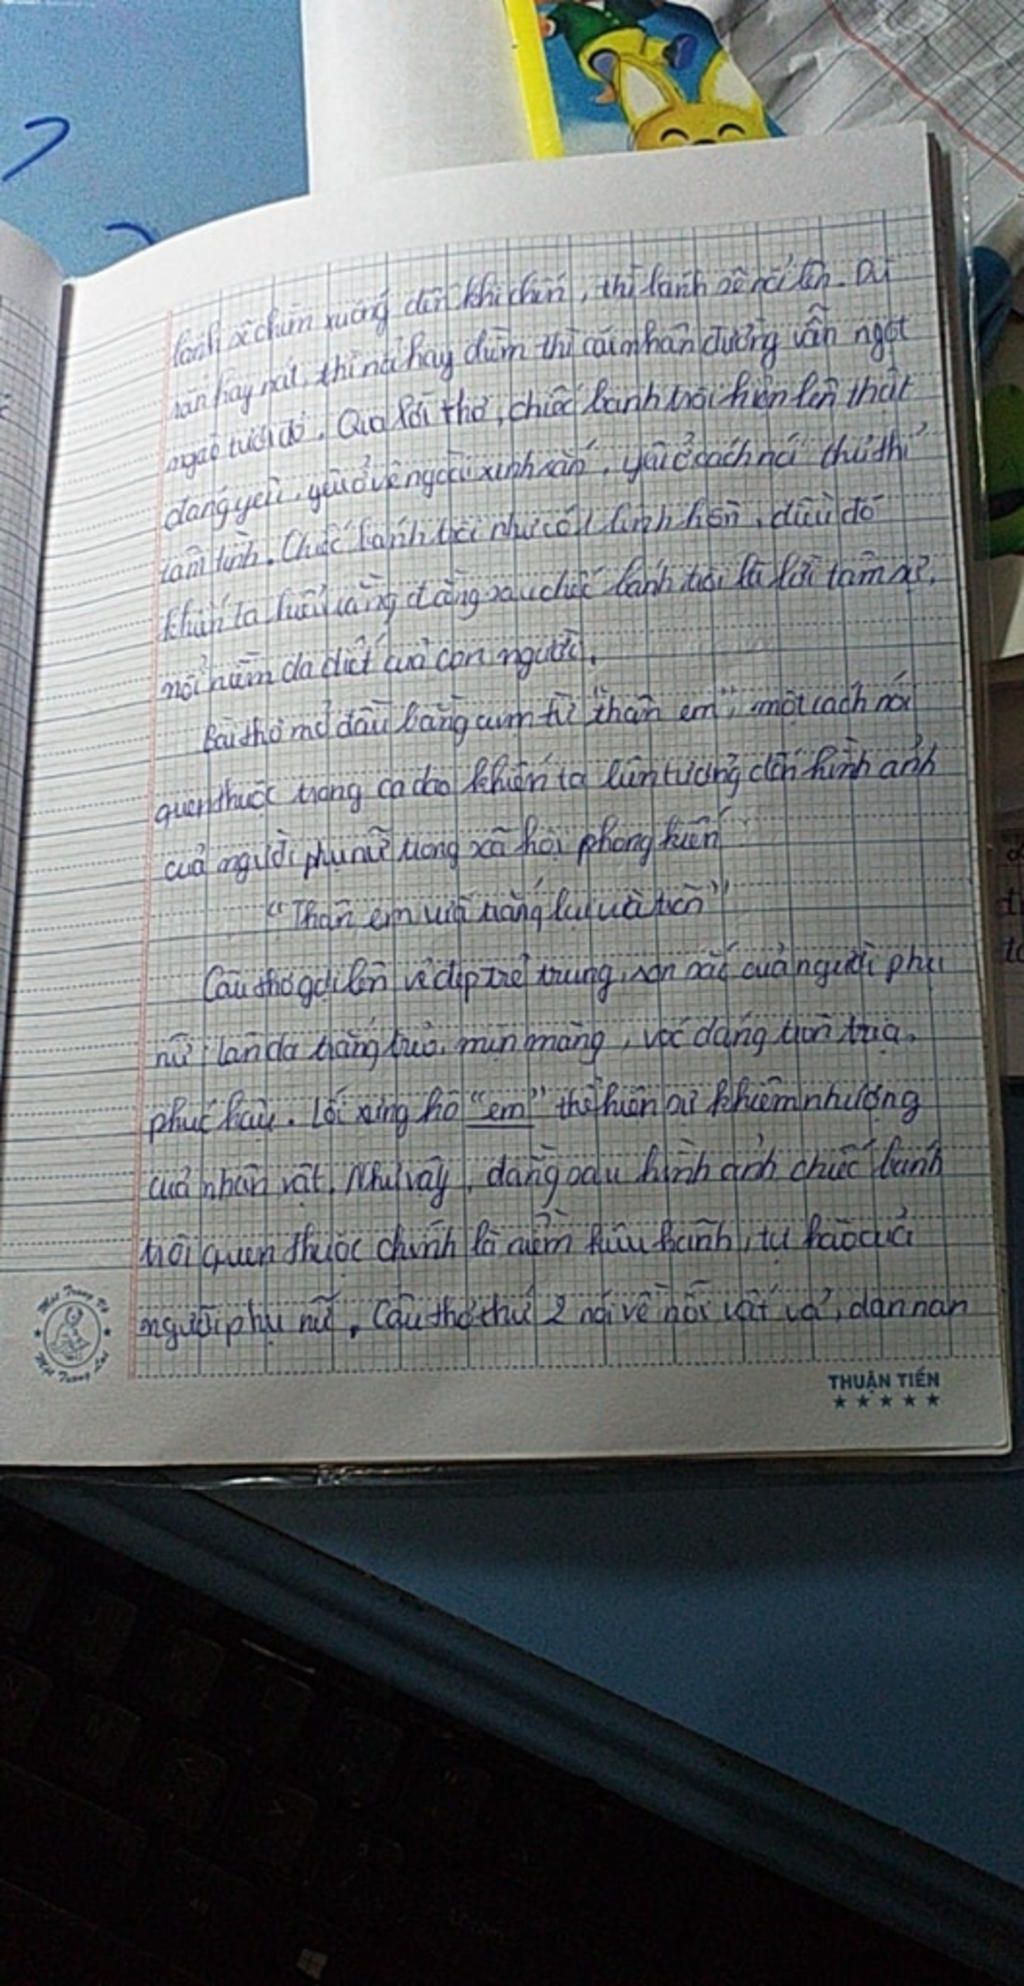 bánh sẽ chìm xuống đến khi chín, thì bánh sẽ nổi lên. Dù
rắn hay nát, thì nổi hay chìm thì cái nhân đường vẫn ngọt
ngào tươi đỏ. Qua lời thơ, chiếc bánh trôi hiện lên thật
đáng yêu, yêu ở vẻ ngoài xinh xắn, yêu ở cách nói thủ thỉ
tâm tình. Chiếc bánh trôi như có linh hồn, điều đó
khiến ta hiểu rằng đằng sau chiếc bánh trôi là lời tâm sự,
nỗi niềm da diết của con người.
Bài thơ mở đầu bằng cụm từ "thân em", một cách nói
quen thuộc trong ca dao khiến ta liên tưởng đến hình ảnh
của người phụ nữ trong xã hội phong kiến
"Thân em vừa trắng lại vừa tròn"
Câu thơ gợi lên vẻ đẹp trẻ trung, son sắc của người phụ
nữ: làn da trắng trẻo, mịn màng, vóc dáng tròn trịa,
phúc hậu. Lối xưng hô "em" thể hiện sự khiêm nhường
của nhân vật. Như vậy, đằng sau hình ảnh chiếc bánh
trôi quen thuộc chính là niềm kiêu hãnh, tự hào của
người phụ nữ. Câu thơ thứ 2 nói về nỗi vất vả, dan nan
THUẬN TIẾN